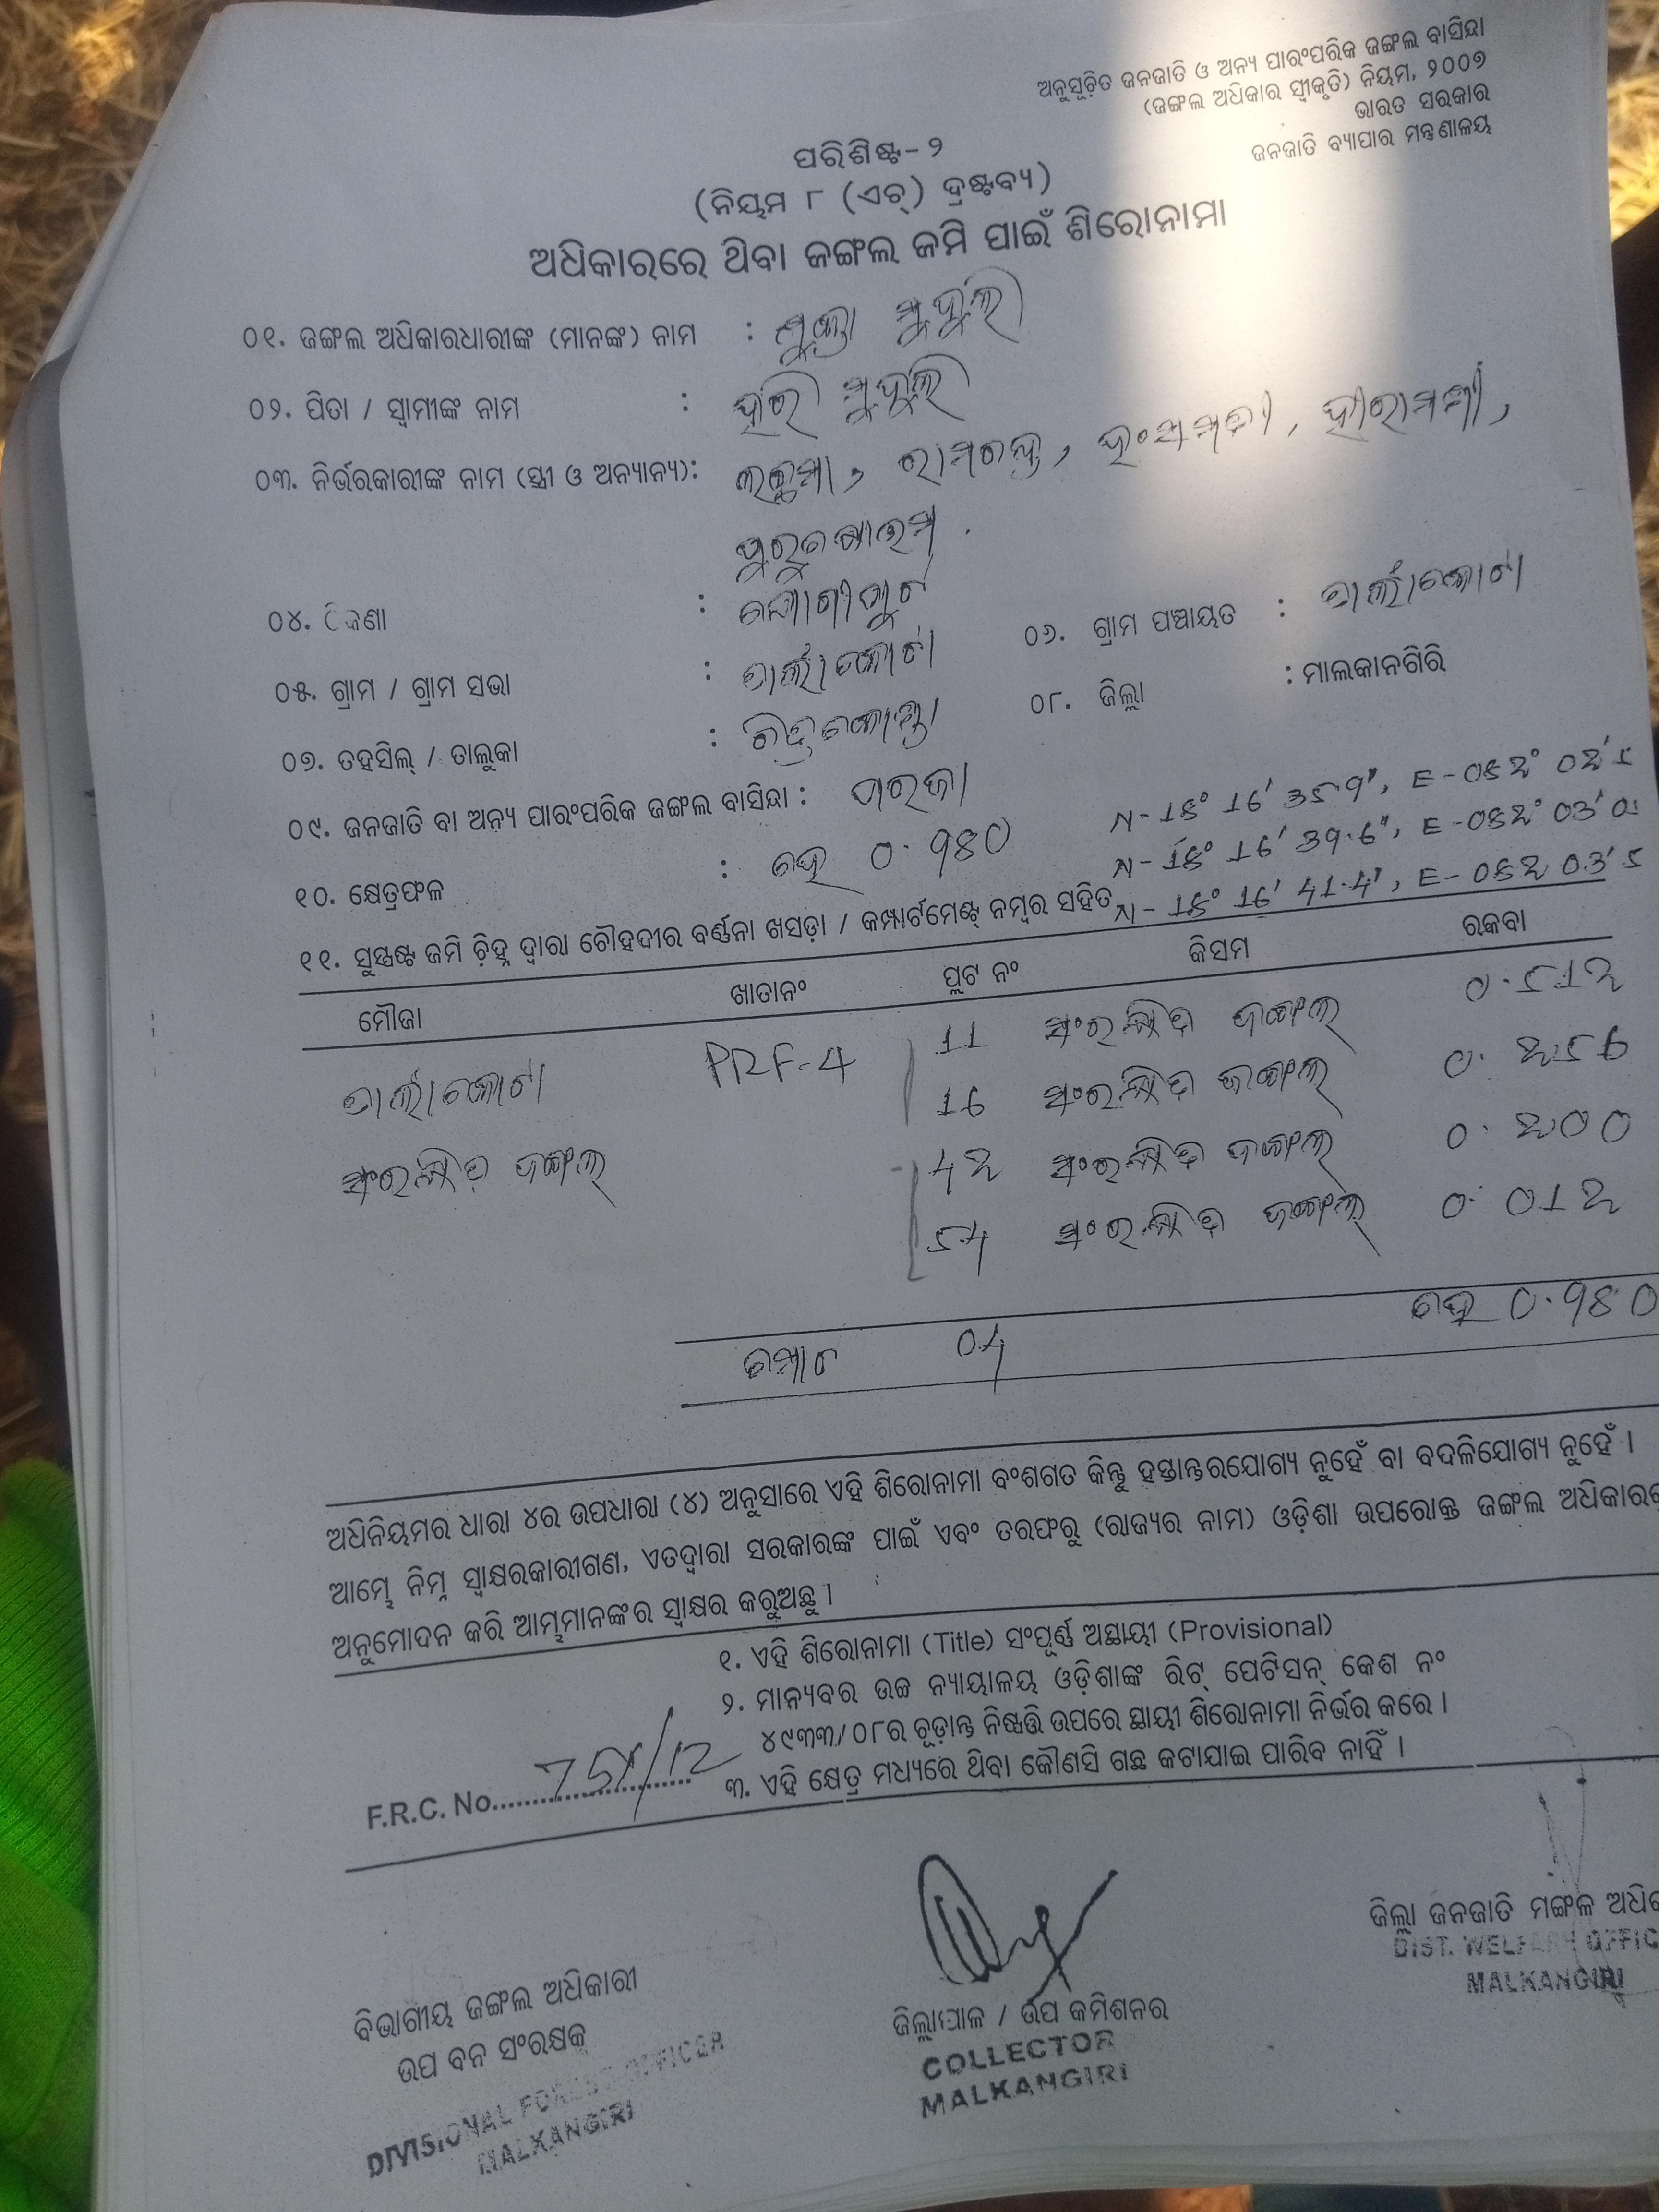 ଅନୁସୂଚିତ ଜନଜାତି ଓ ଅନ୍ୟ ପାରଂପରିକ ଜଙ୍ଗଲ ବାସିନ୍ଦା
(ଜଙ୍ଗଲ ଅଧିକାର ସ୍ୱୀକୃତି) ନିୟମ, ୨୦୦୭
ଭାରତ ସରକାର
ଜନଜାତି ବ୍ୟାପାର ମନ୍ତ୍ରଣାଳୟ
ପରିଶିଷ୍ଟ-୨
(ନିୟମ ୮ (ଏଚ୍) ଦ୍ରଷ୍ଟବ୍ୟ)
ଅଧିକାରରେ ଥିବା ଜଙ୍ଗଲ ଜମି ପାଇଁ ଶିରୋନାମା
୦୧. ଜଙ୍ଗଲ ଅଧିକାରଧାରୀଙ୍କ (ମାନଙ୍କ) ନାମ : ମୁକ୍ତା ମୁଦୁଲି
୦୨. ପିତା / ସ୍ୱାମୀଙ୍କ ନାମ : ହରି ମୁଦୁଲି
୦୩. ନିର୍ଭରକାରୀଙ୍କ ନାମ (ସ୍ତ୍ରୀ ଓ ଅନ୍ୟାନ୍ୟ): ଲଛମା, ରାମଚନ୍ଦ୍ର, ହଂସମତୀ, ହୀରାମଣୀ,
୦୪. ଠିକଣା :
୦୫. ଗ୍ରାମ / ଗ୍ରାମ ସଭା : ଟାର୍ଲାକୋଟା
୦୬. ଗ୍ରାମ ପଞ୍ଚାୟତ : ଟାର୍ଲାକୋଟା
୦୭. ତହସିଲ୍ / ତାଲୁକା : ଚିତ୍ରକୋଣ୍ଡା
୦୮. ଜିଲ୍ଲା : ମାଲକାନଗିରି
୦୯. ଜନଜାତି ବା ଅନ୍ୟ ପାରଂପରିକ ଜଙ୍ଗଲ ବାସିନ୍ଦା : ପରଜା
୧୦. କ୍ଷେତ୍ରଫଳ : ହେ 0.980
N-18° 16' 35.9", E-082° 02'
N-18° 16' 39.6", E-082° 03'
N-18° 16' 41.4", E-082 03'
୧୧. ସୁସ୍ପଷ୍ଟ ଜମି ଚିହ୍ନ ଦ୍ୱାରା ଚୌହଦୀର ବର୍ଣ୍ଣନା ଖସଡ଼ା / କମ୍ପାର୍ଟମେଣ୍ଟ୍ ନମ୍ବର ସହିତ
ମୌଜା ଖାତାନଂ ପ୍ଲଟ ନଂ କିସମ ରକବା
ଟାର୍ଲାକୋଟା PRF-4 11 ସଂରକ୍ଷିତ ଜଙ୍ଗଲ 0.512
ସଂରକ୍ଷିତ ଜଙ୍ଗଲ 16 ସଂରକ୍ଷିତ ଜଙ୍ଗଲ 0.256
42 ସଂରକ୍ଷିତ ଜଙ୍ଗଲ 0.200
54 ସଂରକ୍ଷିତ ଜଙ୍ଗଲ 0.012
ମୋଟ 04 ହେ 0.980
ଅଧିନିୟମର ଧାରା ୪ର ଉପଧାରା (୪) ଅନୁସାରେ ଏହି ଶିରୋନାମା ବଂଶଗତ କିନ୍ତୁ ହସ୍ତାନ୍ତରଯୋଗ୍ୟ ନୁହେଁ ବା ବଦଳିଯୋଗ୍ୟ ନୁହେଁ ।
ଆମ୍ଭେ ନିମ୍ନ ସ୍ୱାକ୍ଷରକାରୀଗଣ, ଏତଦ୍ଦ୍ୱାରା ସରକାରଙ୍କ ପାଇଁ ଏବଂ ତରଫରୁ (ରାଜ୍ୟର ନାମ) ଓଡ଼ିଶା ଉପରୋକ୍ତ ଜଙ୍ଗଲ
ଅନୁମୋଦନ କରି ଆମ୍ଭମାନଙ୍କର ସ୍ୱାକ୍ଷର କରୁଅଛୁ ।
୧. ଏହି ଶିରୋନାମା (Title) ସଂପୂର୍ଣ୍ଣ ଅସ୍ଥାୟୀ (Provisional)
୨. ମାନ୍ୟବର ଉଚ୍ଚ ନ୍ୟାୟାଳୟ ଓଡ଼ିଶାଙ୍କ ରିଟ୍ ପେଟିସନ୍ କେଶ ନଂ
୪୯୩୩/୦୮ର ଚୂଡ଼ାନ୍ତ ନିଷ୍ପତ୍ତି ଉପରେ ସ୍ଥାୟୀ ଶିରୋନାମା ନିର୍ଭର କରେ ।
୩. ଏହି କ୍ଷେତ୍ର ମଧ୍ୟରେ ଥିବା କୌଣସି ଗଛ କଟାଯାଇ ପାରିବ ନାହିଁ ।
F.R.C. No.
ବିଭାଗୀୟ ଜଙ୍ଗଲ ଅଧିକାରୀ
ଉପ ବନ ସଂରକ୍ଷକ
DIVISIONAL FOREST OFFICER
MALKANGIRI
ଜିଲ୍ଲାପାଳ / ଉପ କମିଶନର
COLLECTOR
MALKANGIRI
ଜିଲ୍ଲା ଜନଜାତି ମଙ୍ଗଳ
DIST. WELFARE
MALKANGIRI